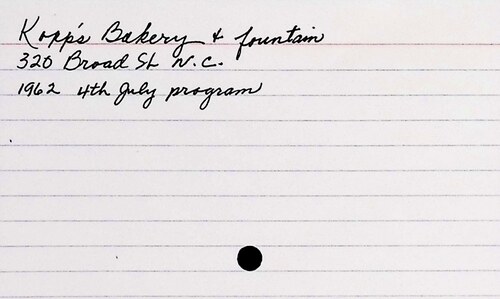 Kopp's Bakery & fountain
320 Broad St N.C.
1962 4th July program